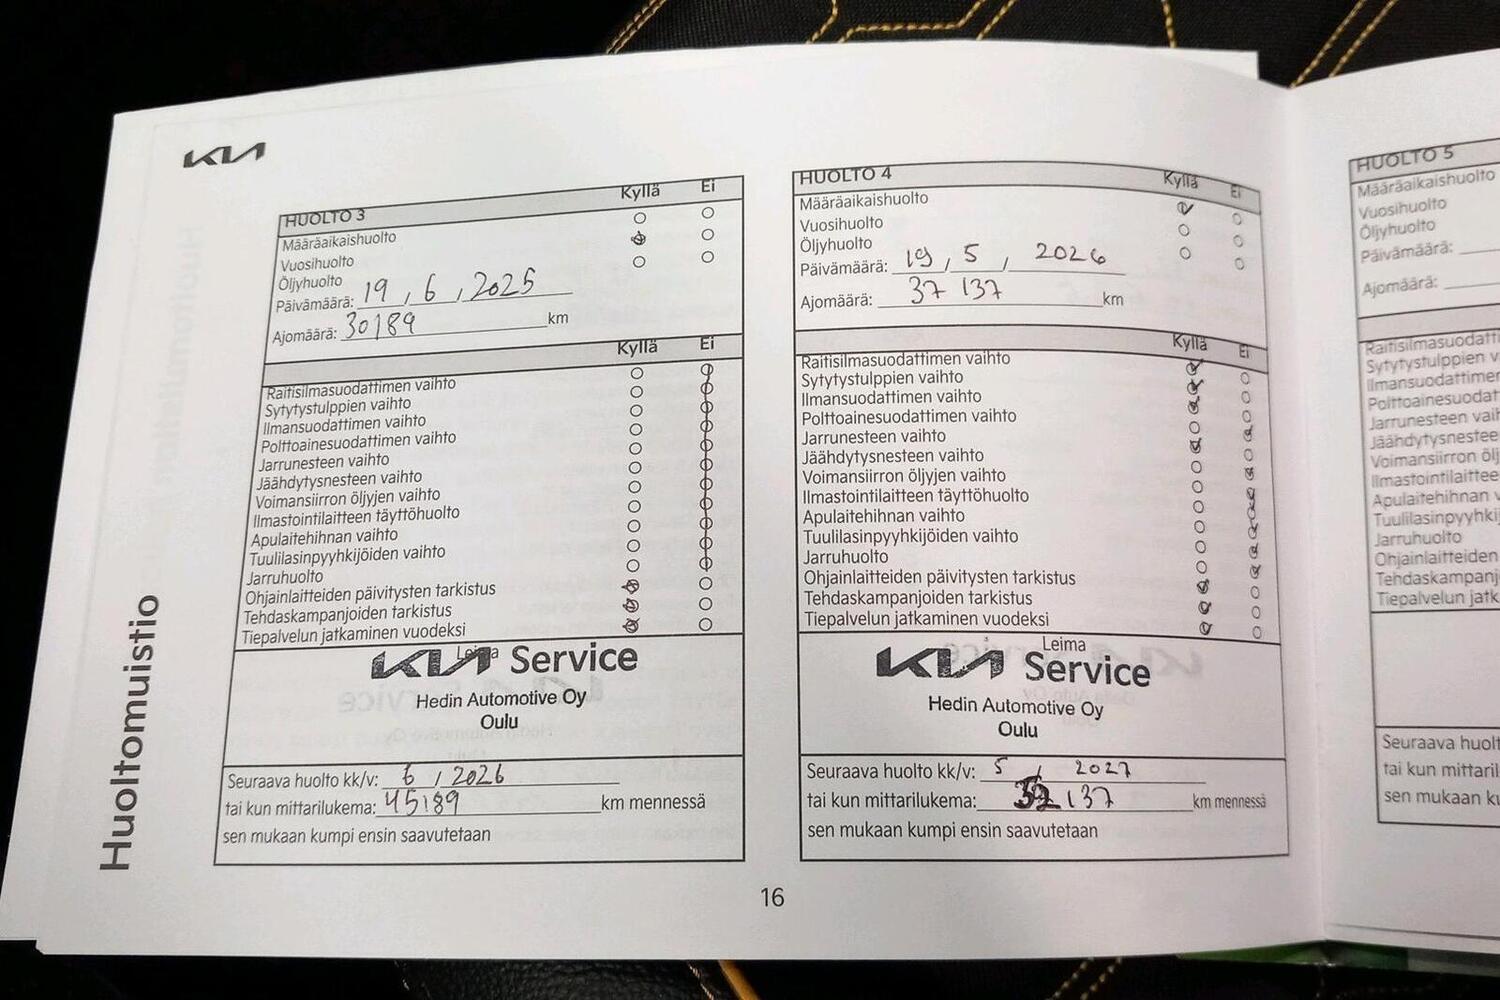 KIA
Huoltomuistio
HUOLTO 3 Kyllä Ei
Määräaikaishuolto
Vuosihuolto
Öljyhuolto
Päivämäärä: 19 , 6 , 2025
Ajomäärä: 30189 km
Kyllä Ei
Raitisilmasuodattimen vaihto
Sytytystulppien vaihto
Ilmansuodattimen vaihto
Polttoainesuodattimen vaihto
Jarrunesteen vaihto
Jäähdytysnesteen vaihto
Voimansiirron öljyjen vaihto
Ilmastointilaitteen täyttöhuolto
Apulaitehihnan vaihto
Tuulilasinpyyhkijöiden vaihto
Jarruhuolto
Ohjainlaitteiden päivitysten tarkistus
Tehdaskampanjoiden tarkistus
Tiepalvelun jatkaminen vuodeksi
Leima
KIA Service
Hedin Automotive Oy
Oulu
Seuraava huolto kk/v: 6 / 2026
tai kun mittarilukema: 45189 km mennessä
sen mukaan kumpi ensin saavutetaan
HUOLTO 4 Kyllä Ei
Määräaikaishuolto
Vuosihuolto
Öljyhuolto
Päivämäärä: 19 / 5 / 2026
Ajomäärä: 37 137 km
Kyllä Ei
Raitisilmasuodattimen vaihto
Sytytystulppien vaihto
Ilmansuodattimen vaihto
Polttoainesuodattimen vaihto
Jarrunesteen vaihto
Jäähdytysnesteen vaihto
Voimansiirron öljyjen vaihto
Ilmastointilaitteen täyttöhuolto
Apulaitehihnan vaihto
Tuulilasinpyyhkijöiden vaihto
Jarruhuolto
Ohjainlaitteiden päivitysten tarkistus
Tehdaskampanjoiden tarkistus
Tiepalvelun jatkaminen vuodeksi
Leima
KIA Service
Hedin Automotive Oy
Oulu
Seuraava huolto kk/v: 5 / 2027
tai kun mittarilukema: 137 km mennessä
sen mukaan kumpi ensin saavutetaan
16
HUOLTO 5
Määräaikaishuolto
Vuosihuolto
Öljyhuolto
Päivämäärä:
Ajomäärä:
Raitisilmasuodatti
Sytytystulppien v
Ilmansuodattimer
Polttoainesuodat
Jarrunesteen vaih
Jäähdytysnestee
Voimansiirron ölj
Ilmastointilaittee
Apulaitehihnan v
Tuulilasinpyyhkij
Jarruhuolto
Ohjainlaitteiden
Tehdaskampanj
Tiepalvelun jatk
Seuraava huolt
tai kun mittaril
sen mukaan ku